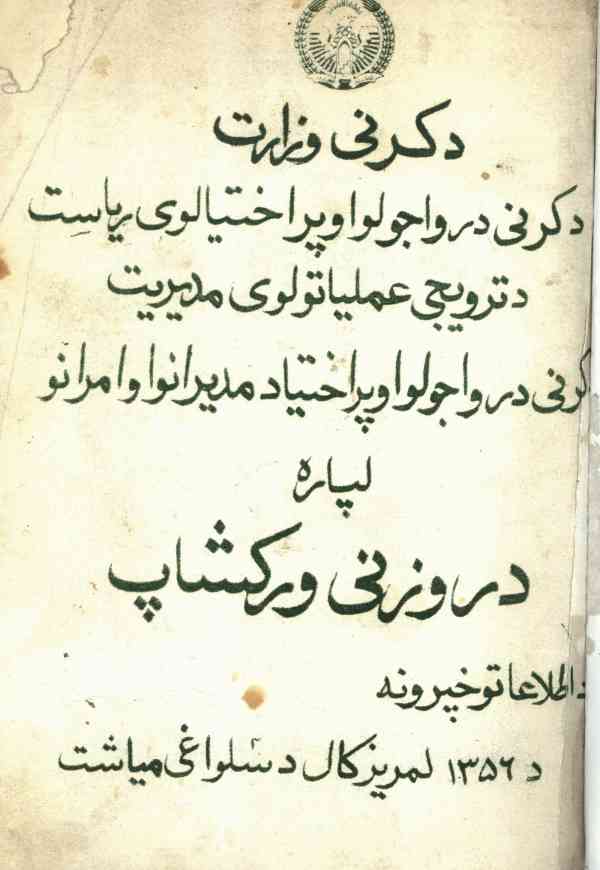 دکرنی وزارت
دکرنی د رواجولو او پراختیا لوی ریاست
د ترویجی عملیاتو لوی مدیریت
کرنی د رواجولو او پراختیا د مدیرانو او امرانو
لپاره
د روزنی ورکشاپ
د اطلاعاتو خپرونه
د ۱۳۵۶ لمریز کال د سلواغی میاشت